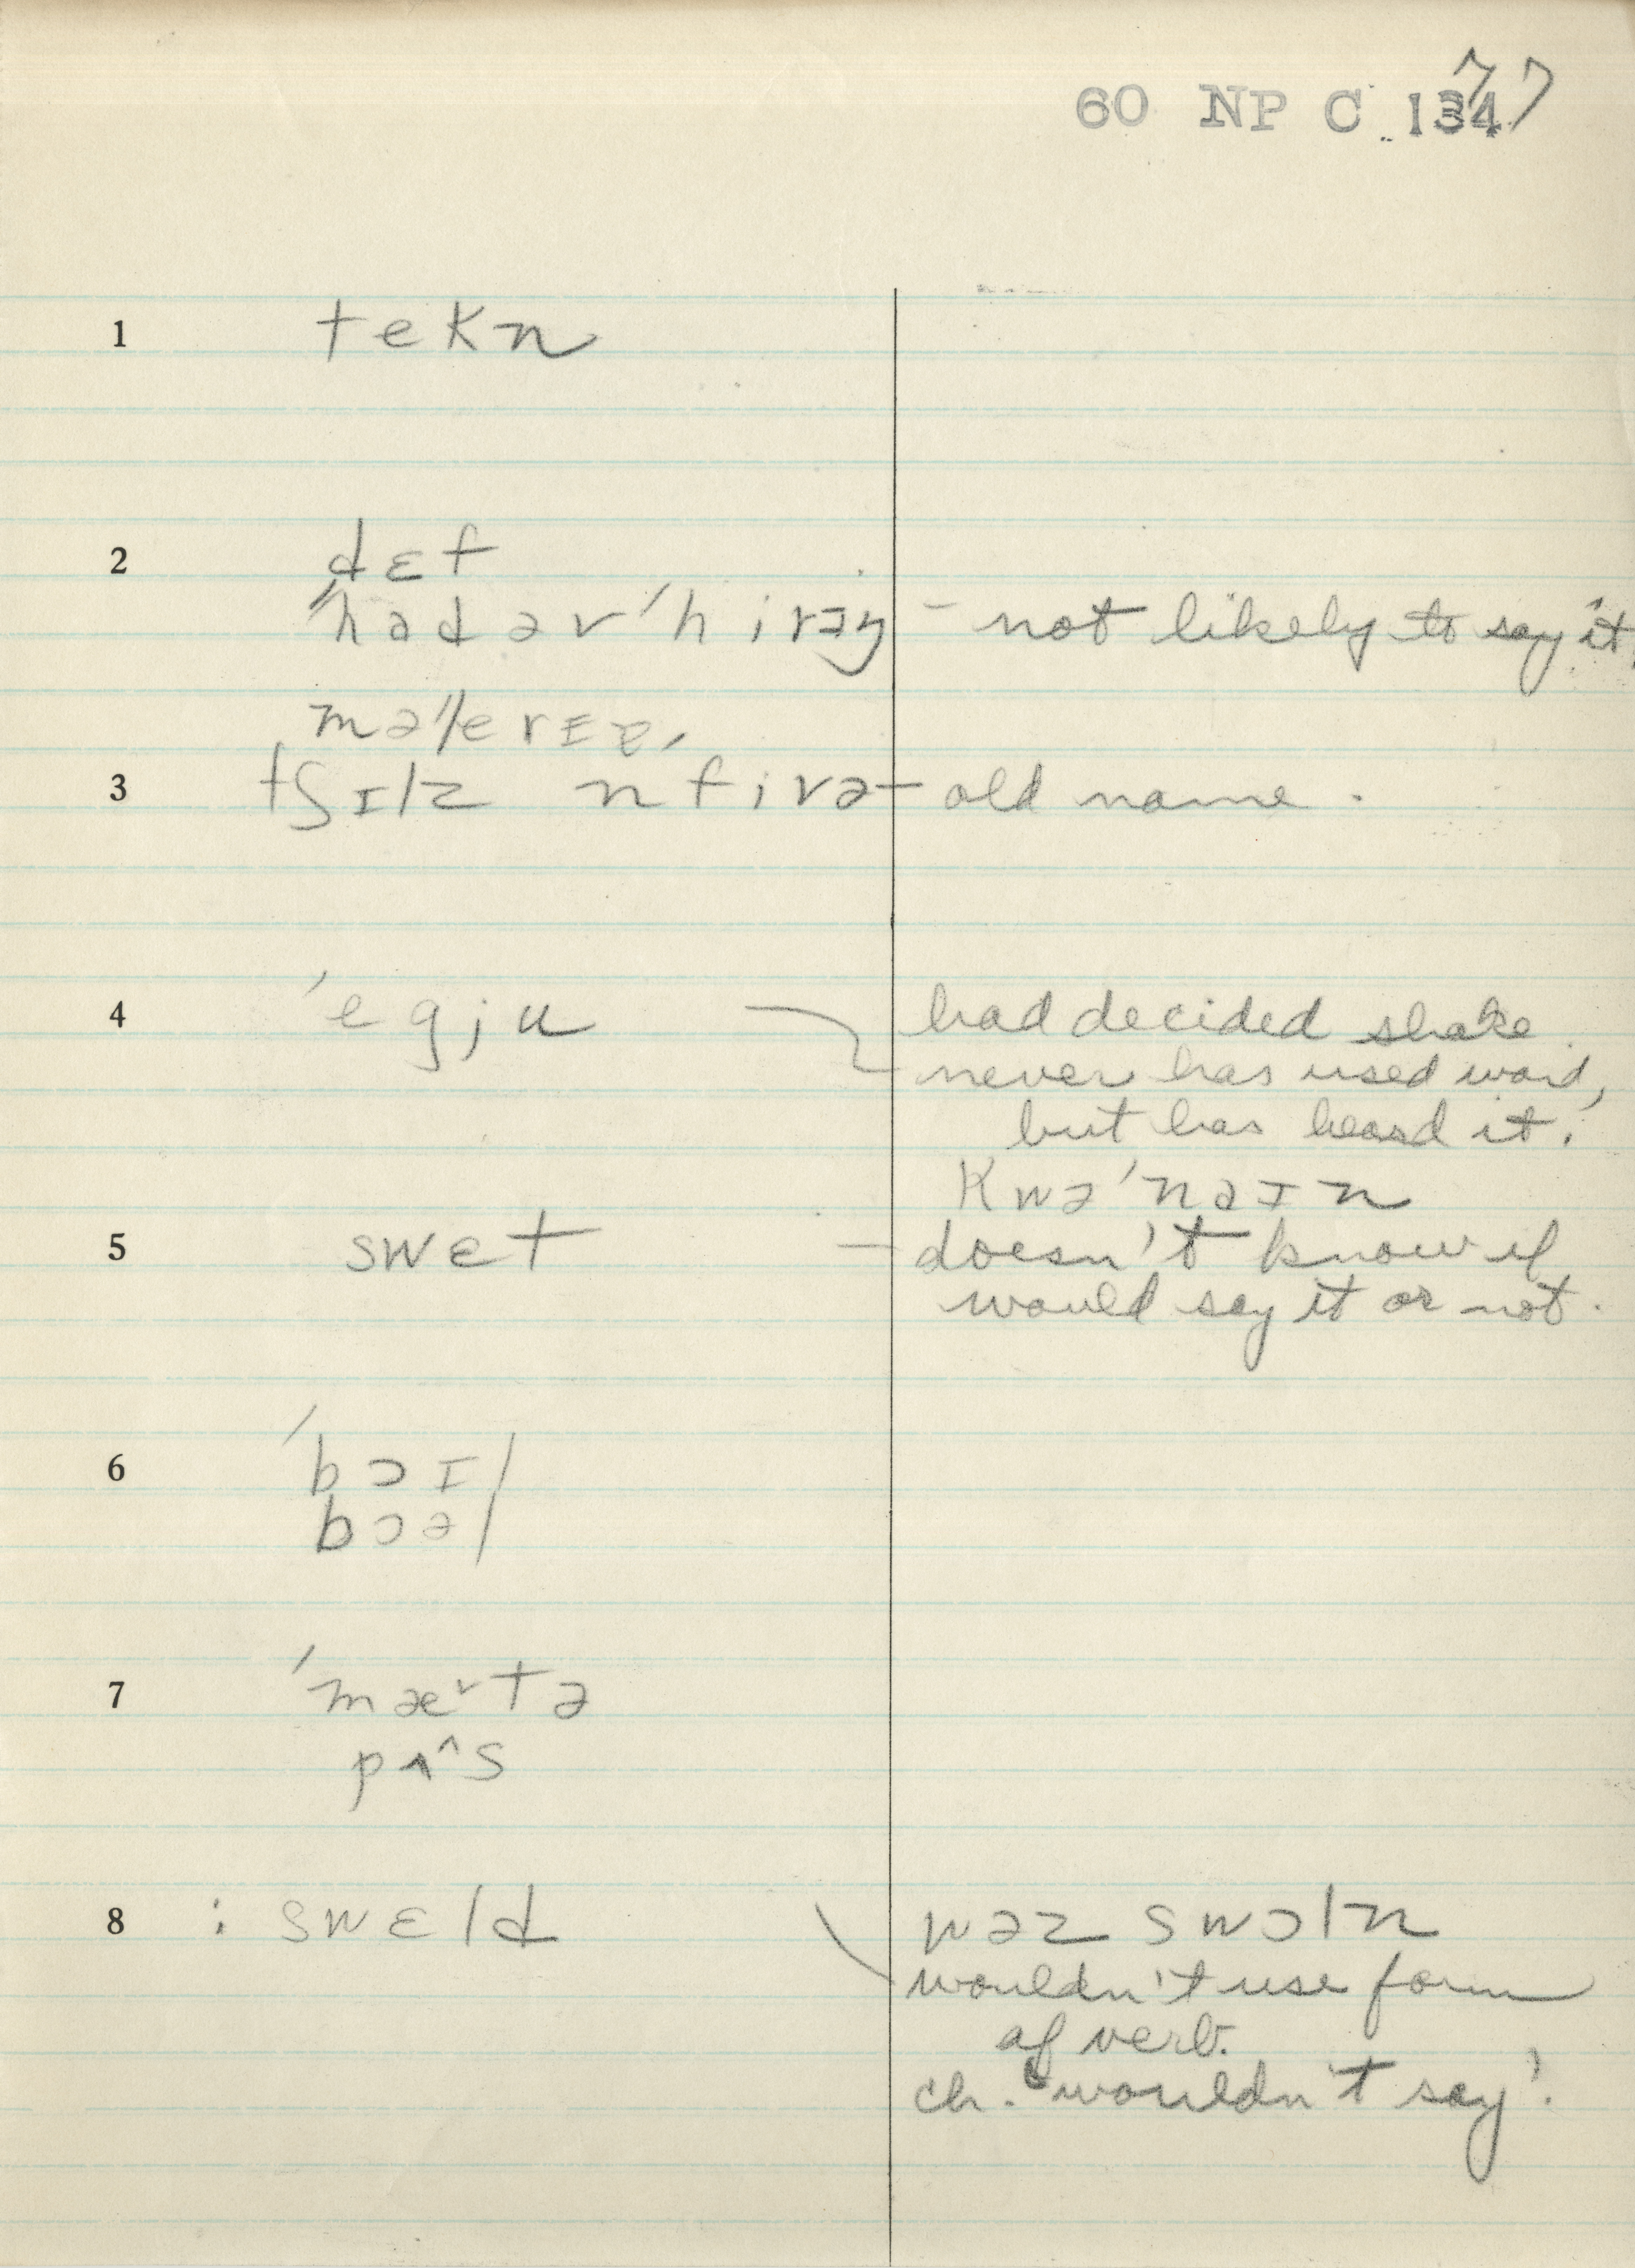 77
60 NP C 134
1 tekn
2 dɛf
ˈhadəvˈhirəŋ - not likely to say it.
məˈlerɪə,
3 tʃɪlz n fivə - old name.
4 ˈegju had decided shake.
never has used word,
but has heard it.
Kwəˈnaɪn
5 swɛt - doesn't know if
would say it or not.
6 ˈbɔɪl
bɔəl
7 ˈmætə
pʌ^s
8 : swɛld wəz swɔln
wouldn't use form
of verb.
ch. 'wouldn't say'.